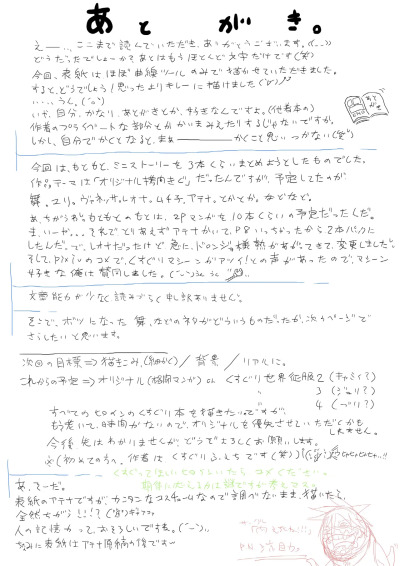 あとがき。
えー…、ここまで読んでいただき、ありがとうございます。(..)
どうだったでしょーか?あとはもうほとんど文字だけです(笑)
今回、表紙はほぼ曲線ツールのみで描かせていただきました。
するとどうでしょう!思ったよりキレーに描けました(°▽°)
……うん。(°▽°)
いや、自分、かなり、あとがきとか、好きなんですよ。(他者本の)
作者のプライベートな部分とかがかいまみえたりするじゃないですか。
しかし、自分でかくとなると、まぁ かくこと思いつかない(笑)
今回は、もともと、ミニストーリーを3本くらいまとめようとしたものでした。
作品テーマは「オリジナル拷問きぐ」だったんですが、予定してたのが
舞、ユリ、ヴァネッサ、レオナ、ムキ子、アテナ、とかとか。などなど。
あ、ちがうか。もともとのもとは、2Pマンガを10本くらいの予定だったんだ。
ま、いーや…。それでとりあえずアテナかいて、P8いっちゃったから2本パックに
したんだ。で、レオナだったけど急に、ドロンジョ様熱があがってきて、変更しました。
そして、pixivのコメで、くすぐりマシーンがアツイ!との声があったので、マシーン
好きな俺は賛同しました。
文章能力が少なく読みづらく申し訳ありません。
そこで、ボツになった舞、などのネタがどういうものだったか、次のページで
さらしたいと思います。
次回の目標⇒描きこみ、(細かく) / 背景 / リアルに。
これからの予定⇒オリジナル(格闘マンガ) or くすぐり世界征服2 (キャミィ?)
〃 3 (ジュリ?)
〃 4 (ブリ?)
すべてのヒロインのくすぐり本を描きたいのですが、
もう老いて、時間がないので、オリジナルを優先させていただくかも
しれません。
今後先はわかりませんが、どうぞよろしくお願いします。
※(初めての方へ、作者はくすぐりふぇちです(笑))
くすぐってほしいヒロインいたらコメください。
あ、そーだ。
表紙のアテナですが、カンタンなコスチュームなので調べないまま、描いたら、
全然ちがう!!!?
人の記憶力って、おそろしいですね。
ちなみに表紙はアテナ原稿の後です〜